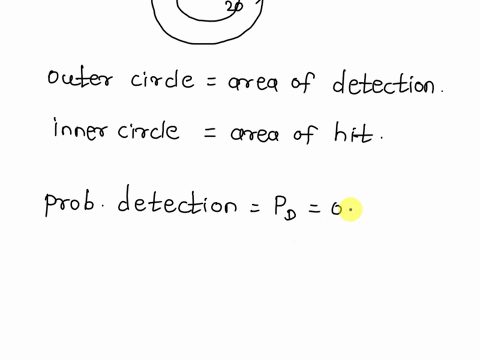 20
outer circle = area of detection.
inner circle = area of hit.
prob. detection = P_D = 0.